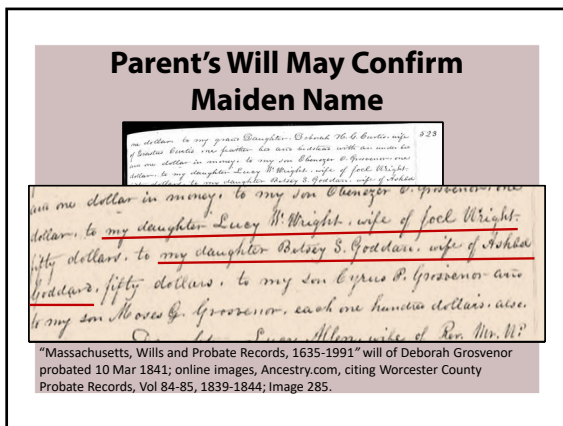 Parent's Will May Confirm
Maiden Name
one dollar to my grand Daughter. Deborah H. G. Curtis, wife 523
of Erastus Curtis one feather bed and bedstead with an under bed
and one dollar in money, to my son Ebenezer O. Grosvenor one
dollar, to my daughter Lucy W. Wright, wife of Joel Wright
my daughter Betsey S. Goddard, wife of Ashbel
and one dollar in money, to my son Ebenezer O. Grosvenor, one
dollar, to my daughter Lucy W. Wright, wife of Joel Wright
fifty dollars, to my daughter Betsey S. Goddard, wife of Ashbel
Goddard, fifty dollars, to my son Cyrus P. Grosvenor and
to my son Moses G. Grosvenor, each one hundred dollars, also,
Allen, wife of Rev. Mr.
"Massachusetts, Wills and Probate Records, 1635-1991" will of Deborah Grosvenor
probated 10 Mar 1841; online images, Ancestry.com, citing Worcester County
Probate Records, Vol 84-85, 1839-1844; Image 285.